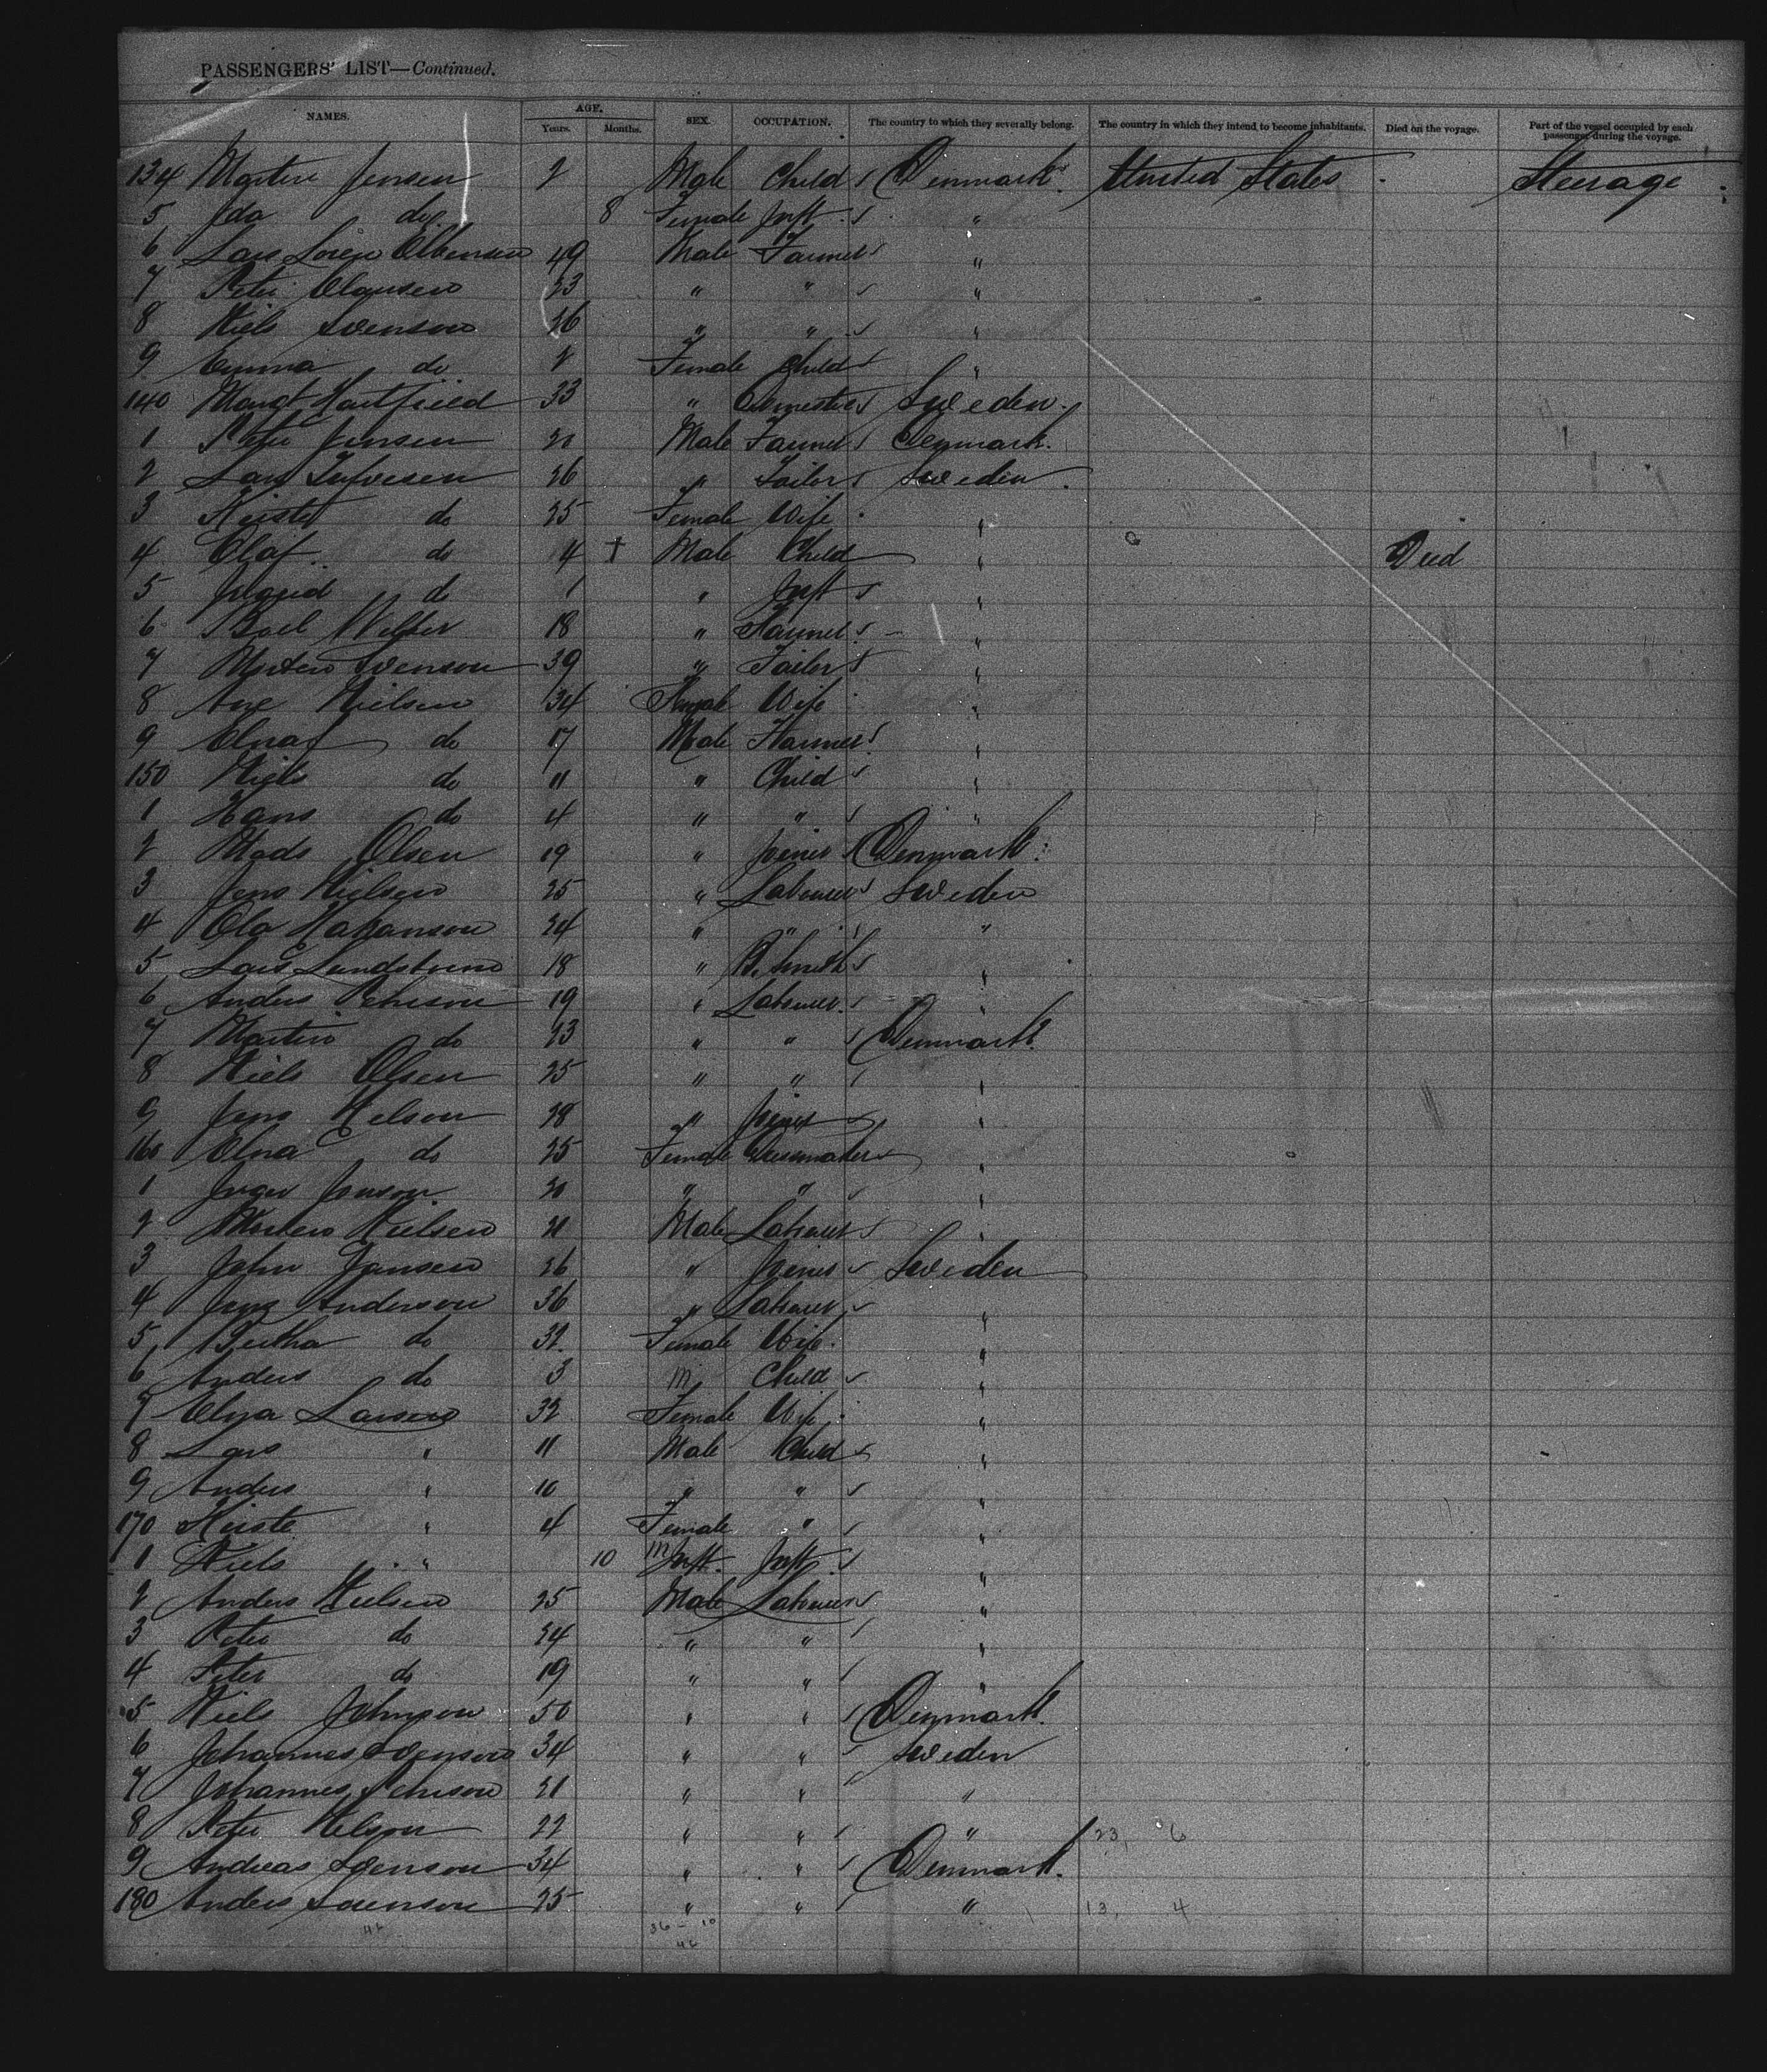 PASSENGERS' LIST—Continued.
NAMES. AGE. Years. Months. SEX. OCCUPATION. The country to which they severally belong. The country in which they intend to become inhabitants. Died on the voyage. Part of the vessel occupied by each passenger during the voyage.
134 Jensen 2 Male Child Denmark United States Steerage
5 Ida do 8 Female Inft "
6 Lars 49 Male Farmer "
7 Peter Clausen 23 " " "
8 Niels Svenson 26 " " "
9 Emma do 2 Female Child "
140 Margt Hartfield 33 " Domestic Sweden
1 Peter Jensen 21 Male Farmer Denmark.
2 Lars 26 " Tailor Sweden
3 do 25 Female Wife "
4 Olaf do 4 † Male Child " Died
5 do 1 " Inft "
6 18 " Farmer "
7 Morten Svenson 39 " Tailor "
8 Ane Nielsen 34 Female Wife "
9 Elna do 17 Male Farmer "
150 Niels do 11 " Child "
1 Hans do 4 " " "
2 Mads Olsen 19 " Joiner Denmark
3 Jens Nielsen 25 " Labourer Sweden
4 Ola Hakanson 24 " " "
5 Lars Lundstrom 18 " B. Smith "
6 Anders Pehrson 19 " Labourer "
7 Martin do 23 " " Denmark
8 Niels Olsen 25 " " "
9 Jens Nelson 28 " Joiner "
160 Elna do 25 Female Dressmaker "
1 Inger 20 " " "
2 Morten Nielsen 21 Male Labourer "
3 John Jansen 26 " Joiner Sweden
4 Jens Anderson 36 " Labourer "
5 Bertha do 32 Female Wife "
6 Anders do 3 m Child "
7 Elna Larsen 32 Female Wife "
8 Lars " 11 Male Child "
9 Anders " 10 " " "
170 Kirste " 4 Female " "
1 Niels " 10 m Inft. Inft. "
2 Anders Nielsen 25 Male Labourer "
3 Peter do 24 " " "
4 Peter do 19 " " "
5 Niels Johnson 50 " " Denmark.
6 Johannes Svenson 34 " " Sweden
7 Johannes Pehrson 21 " " "
8 Peter Nelson 22 " " " 23, 6
9 Andreas Svenson 34 " " Denmark.
180 Anders Sorenson 25 " " " 13, 4
46 36 - 10
46